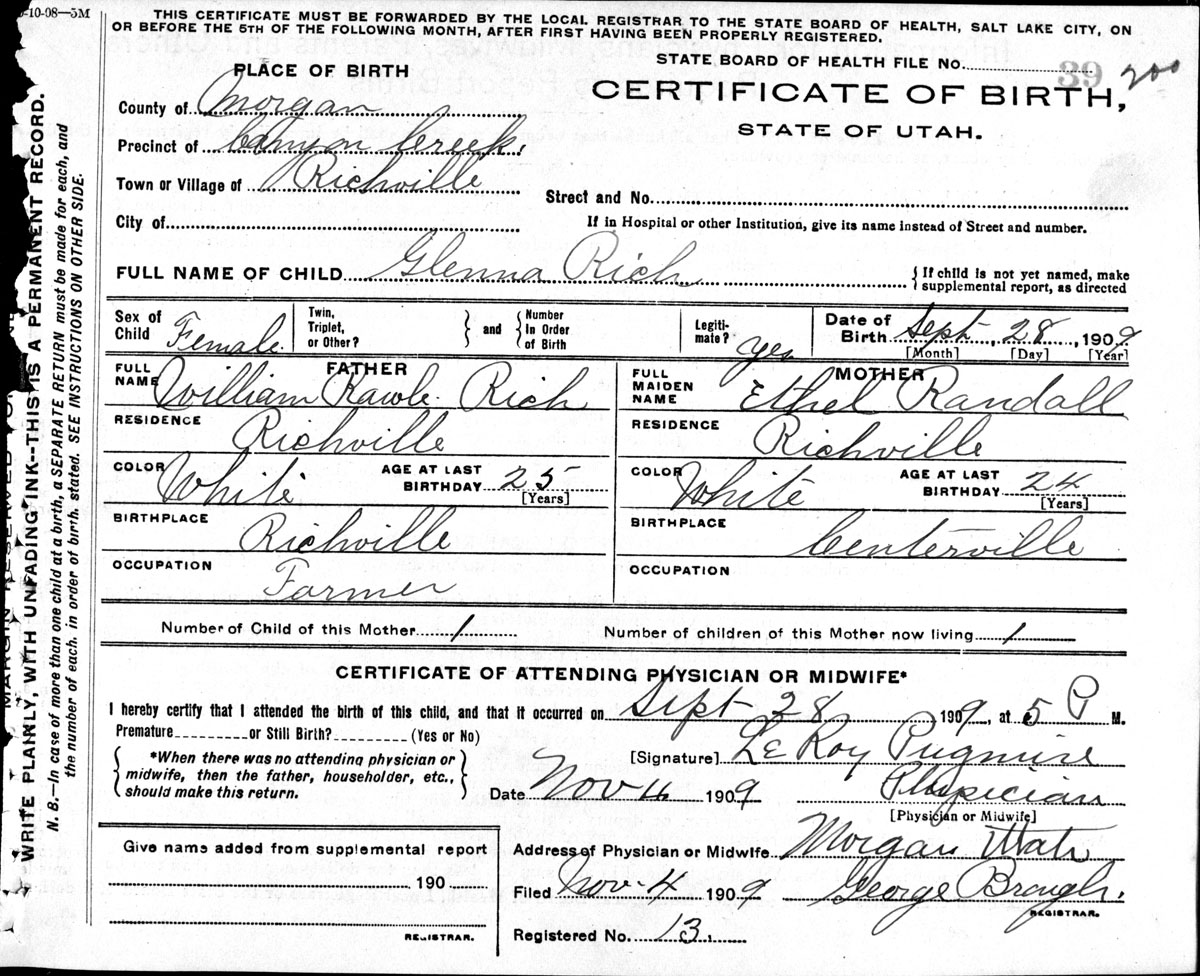 -10-08—5M
THIS CERTIFICATE MUST BE FORWARDED BY THE LOCAL REGISTRAR TO THE STATE BOARD OF HEALTH, SALT LAKE CITY, ON
OR BEFORE THE 5TH OF THE FOLLOWING MONTH, AFTER FIRST HAVING BEEN PROPERLY REGISTERED.
STATE BOARD OF HEALTH FILE No. 39 200
PLACE OF BIRTH
CERTIFICATE OF BIRTH,
STATE OF UTAH.
County of Morgan
Precinct of Canyon Creek.
Town or Village of Richville
Street and No.
City of
If in Hospital or other Institution, give its name instead of Street and number.
FULL NAME OF CHILD Glenna Rich
{ If child is not yet named, make
supplemental report, as directed
Sex of Child Female.
Twin, Triplet, or Other? } and { Number In Order of Birth
Legiti-mate? yes
Date of Birth Sept. 28, 1909
[Month] [Day] [Year]
FATHER
FULL NAME William Rawle Rich
MOTHER
FULL MAIDEN NAME Ethel Randall
RESIDENCE Richville
RESIDENCE Richville
COLOR White AGE AT LAST BIRTHDAY 25 [Years]
COLOR White AGE AT LAST BIRTHDAY 24 [Years]
BIRTHPLACE Richville
BIRTHPLACE Centerville
OCCUPATION Farmer
OCCUPATION
Number of Child of this Mother 1 Number of children of this Mother now living 1
CERTIFICATE OF ATTENDING PHYSICIAN OR MIDWIFE*
I hereby certify that I attended the birth of this child, and that it occurred on Sept 28 1909, at 5 P M.
Premature or Still Birth? (Yes or No)
[Signature] LeRoy Pugmire
{ *When there was no attending physician or
midwife, then the father, householder, etc.,
should make this return. }
Date Nov 4 1909 Physician
[Physician or Midwife]
Give name added from supplemental report
190
REGISTRAR.
Address of Physician or Midwife Morgan Utah
Filed Nov. 4 1909 George Brough.
REGISTRAR.
Registered No. 13.
WRITE PLAINLY, WITH UNFADING INK--THIS IS A PERMANENT RECORD.
N. B.—In case of more than one child at a birth, a SEPARATE RETURN must be made for each, and
the number of each, in order of birth, stated. SEE INSTRUCTIONS ON OTHER SIDE.